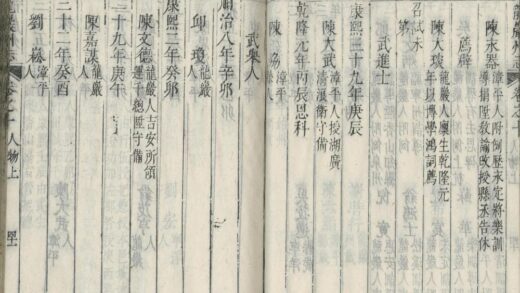 陳永器 漳平人附例歷永定將樂訓
導捐陞教諭改授縣丞告休
薦辟
陳大琰 龍巖人廩生乾隆元
年以博學鴻詞薦
召試未
第
武進士
康熙三十九年庚辰
陳大武 漳平人授湖廣
清浪衛守備
乾隆元年丙辰恩科
陳 漳平
人
武舉人
順治八年辛卯
邱瓊 龍巖
人
康熙二年癸卯
陳文德 龍巖人吉安所領
運千總陞守備
二十九年庚午
陳嘉謨 龍巖
人
三十二年癸酉
劉嵩 漳平
人
卷之十 人物上